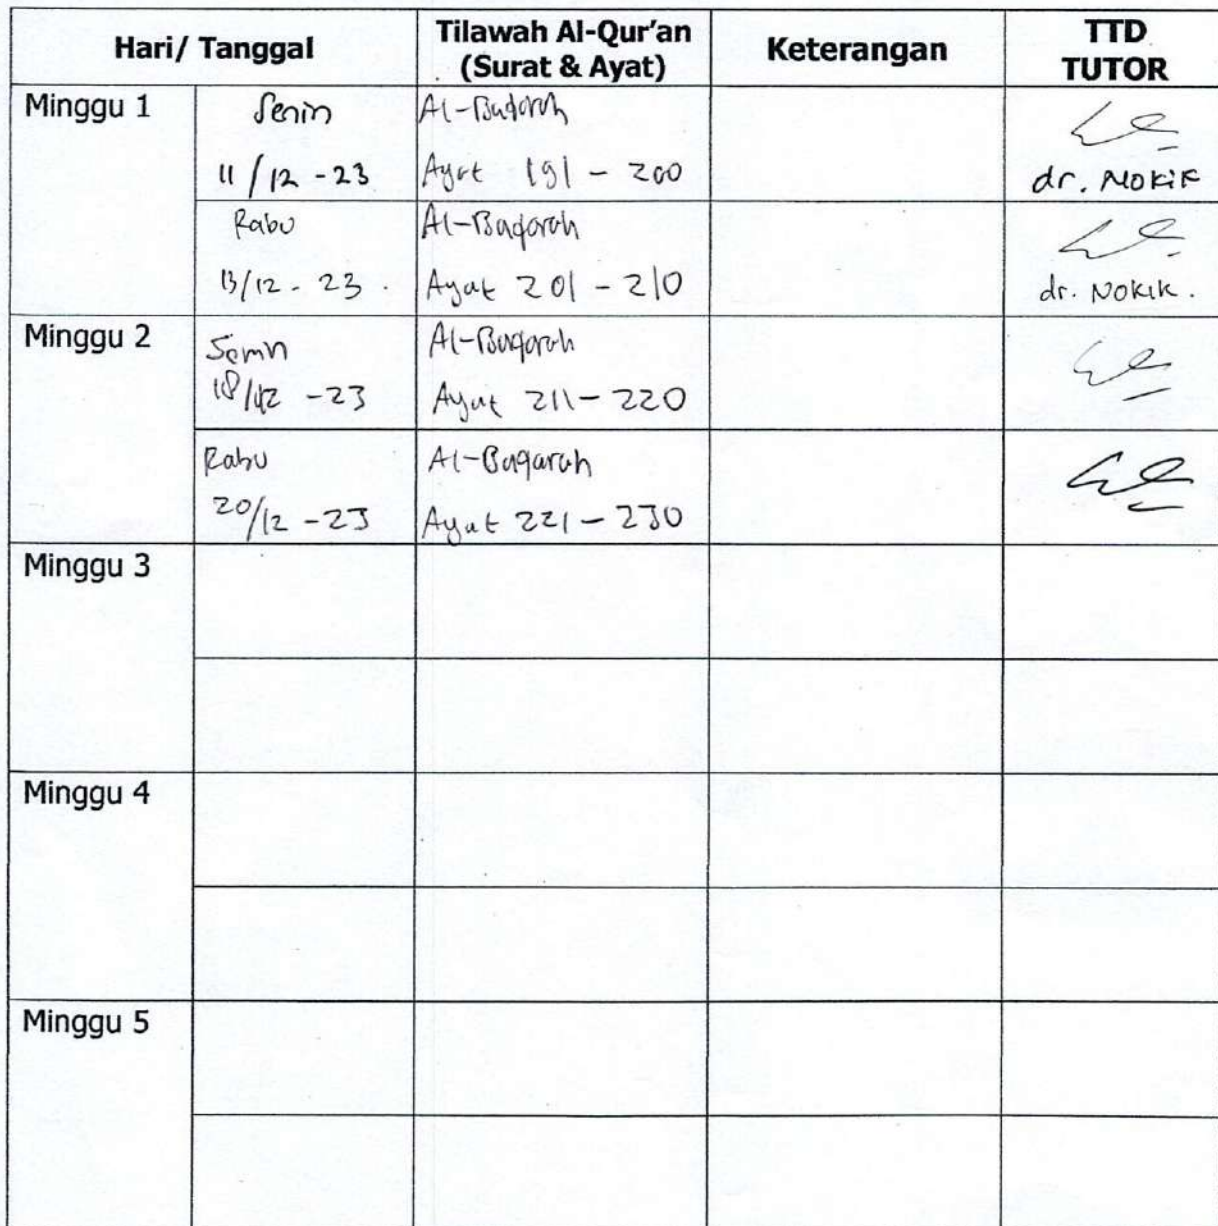 Hari/ Tanggal
Tilawah Al-Qur'an
(Surat & Ayat)
Keterangan
TTD
TUTOR
Minggu 1
Senin
11/12 - 23
Al-Baqarah
Ayat 191 - 200
dr. Nokik
Rabu
13/12 - 23.
Al-Baqarah
Ayat 201 - 210
dr. Nokik.
Minggu 2
Senin
18/12 - 23
Al-Baqarah
Ayat 211 - 220
Rabu
20/12 - 23
Al-Baqarah
Ayat 221 - 230
Minggu 3
Minggu 4
Minggu 5